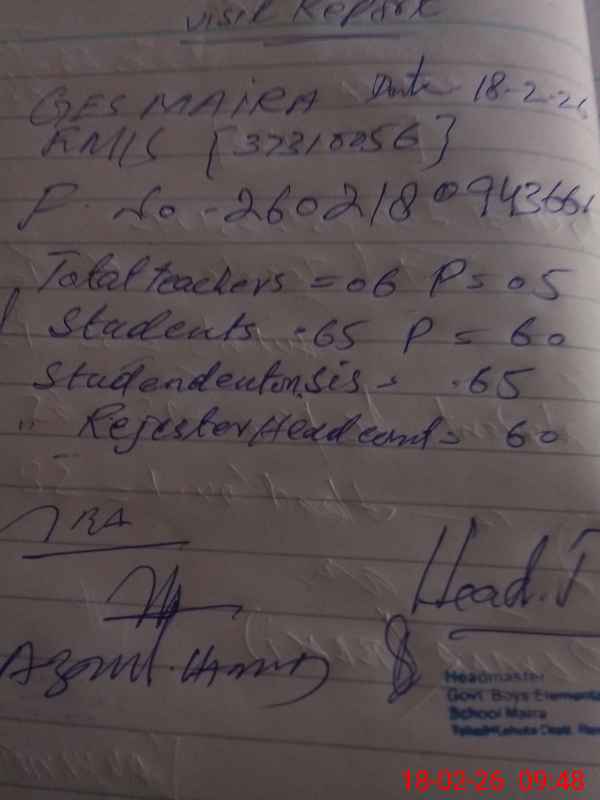 Visit Report
GES MAIRA Date - 18-2-26
EMIS [37310056]
P. No - 260218094366
Total teachers = 06 P = 05
Students = 65 P = 60
Student on sis = 65
" Rejester Head count = 60
Head. T
Headmaster
Govt. Boys Elementa
School Maira
Tehsil Kahuta Distt. Raw
18-02-26 09:48